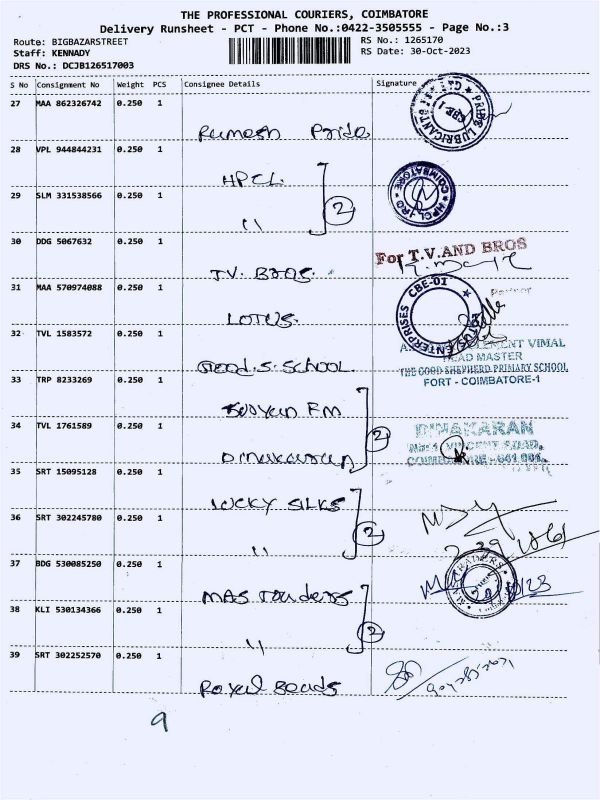 THE PROFESSIONAL COURIERS, COIMBATORE
Delivery Runsheet - PCT - Phone No.:0422-3505555 - Page No.:3
Route: BIGBAZARSTREET
RS No.: 1265170
Staff: KENNADY
RS Date: 30-Oct-2023
DRS No.: DCJB126517003
S No Consignment No Weight PCS Consignee Details Signature
27 MAA 862326742 0.250 1
PRIDE LUBRICANTS CBE-1
Pride
28 VPL 944844231 0.250 1
HPCL
HPCL RO COIMBATORE
29 SLM 331538566 0.250 1
2
"
30 DDG 5067632 0.250 1
For T.V.AND BROS
T.V. BROS.
31 MAA 570974088 0.250 1
LOTUS ENTERPRISES CBE-01
LOTUS.
32 TVL 1583572 0.250 1
CLEMENT VIMAL
HEAD MASTER
Good.S.SCHOOL.
THE GOOD SHEPHERD PRIMARY SCHOOL
FORT - COIMBATORE-1
33 TRP 8233269 0.250 1
Suryan FM
34 TVL 1761589 0.250 1
2
DINAKARAN
VINCENT ROAD,
Dinakaran
COIMBATORE - 641 001.
35 SRT 15095128 0.250 1
LUCKY SILKS
36 SRT 302245780 0.250 1
2
"
37 BDG 530085250 0.250 1
MAS Traders
38 KLI 530134366 0.250 1
2
"
39 SRT 302252570 0.250 1
Royal Beads
9